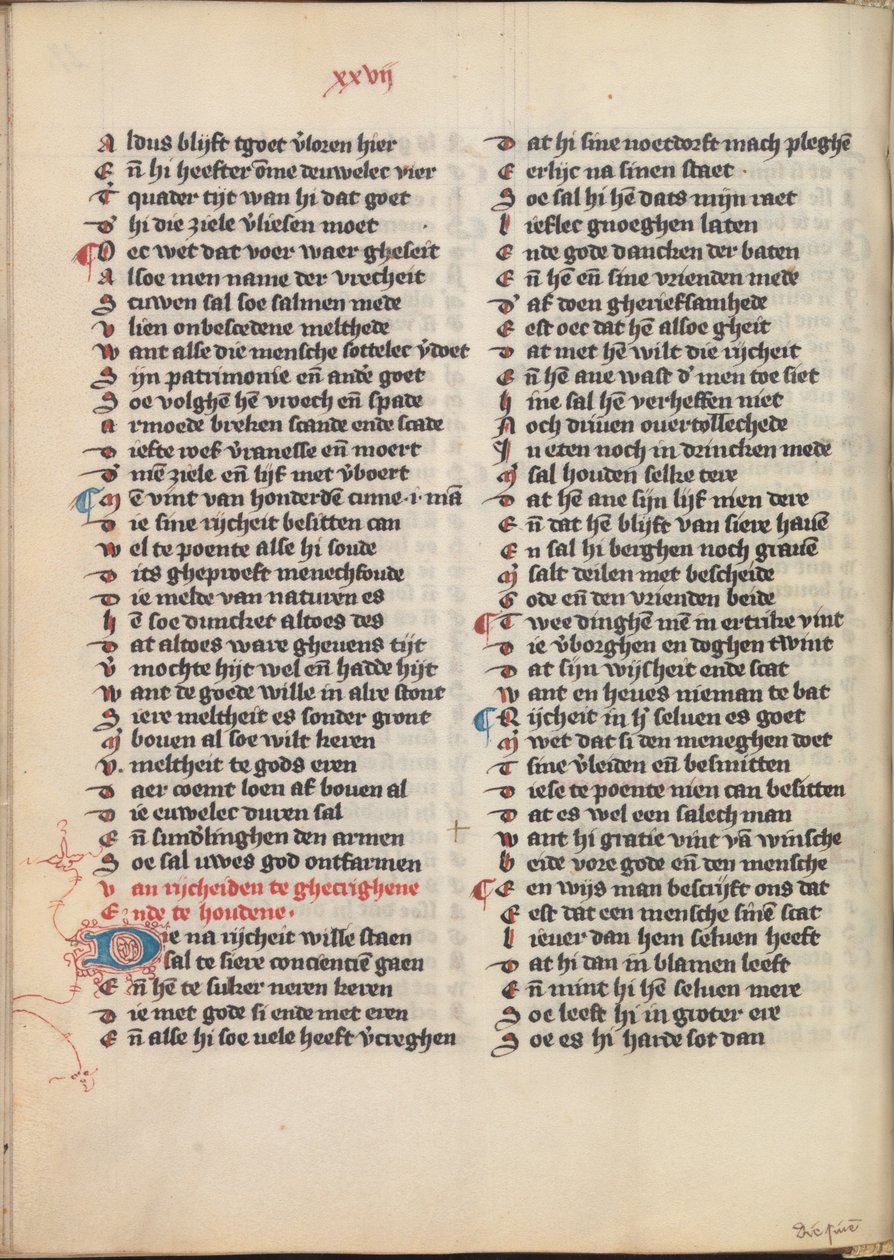 xxvij
Aldus blijft tgoet v̄loren hier
Eñ hi heefter ōme deuwelec vier
T̄ quader tijt wan hi dat goet
D̄ hi die ziele v̄liesen moet
Oec wet dat voer waer gheseit
Alsoe men name der vrecheit
Scuwen sal soe salmen mede
Vlien onbescedene melthede
Want alse die mensche sottelec v̄doet
Sijn patrimonie eñ and̄ goet
Soe volghē hē vroech eñ spade
Armoede breken scande ende scade
Diefte wek v̄ranesse eñ moert
D̄ mē ziele eñ lijf met v̄boert
Mē vint van honderdē cume .i. mā
Die sine rijcheit besitten can
Wel te poente alse hi soude
Dits gheproeft menechfoude
Die melde van naturen es
Hē soe duncket altoes des
Dat altoes ware gheuens tijt
V̄mochte hijt wel eñ hadde hijt
Want de goede wille in alre stont
Siere meltheit es sonder gront
Mͥ bouen al soe wilt keren
V. meltheit te gods eren
Daer coemt loen af bouen al
Die euwelec duren sal
Eñ sund̄linghen den armen
Soe sal uwes god ontfarmen
Van rijcheiden te ghecrighene
Ende te houdene.
Die na rijcheit wille staen
sal te siere conciencie gaen
Eñ hē te suker neren keren
Die met gode si ende met eren
Eñ alse hi soe uele heeft v̄creghen
Dat hi sine noetdorft mach pleghē
Eerlijc na sinen staet
Soe sal hi hē dats mijn raet
Lieflec gnoeghen laten
Ende gode dancken der baten
Eñ hē eñ sine vrienden mede
D̄ af doen gheriefsamhede
Eest oec dat hē alsoe gheit
Dat met hē wilt die rijcheit
Eñ hē aue wast d̄ men toe siet
Hine sal hē verheffen niet
Noch driuen ouertollechede
In eten noch in drincken mede
Mͥ sal houden selke tere
Dat hē ane sijn lijf nien dere
Eñ dat hē blijft van siere hauē
En sal hi berghen noch grauē
Mͥ salt deilen met bescheide
Gode eñ den vrienden beide
Twee dinghē mē in ertrike vint
Die v̄borghen en doghen twint
Dat sijn wijsheit ende scat
Want en heues nieman te bat
Rijcheit in hͬ seluen es goet
Mͥ wet dat si den meneghen doet
Tsine v̄leiden eñ besmitten
Diese te poente nien can besitten
Dat es wel een salech man
Want hi gratie vint vā winsche
Beide vore gode eñ den mensche
Een wijs man bescrijft ons dat
Eest dat een mensche sinē scat
Lieuer dan hem seluen heeft
Dat hi dan in blamen leeft
Eñ mint hi hē seluen mere
Soe leeft hi in groter ere
Soe es hi harde sot dan
Die sinē